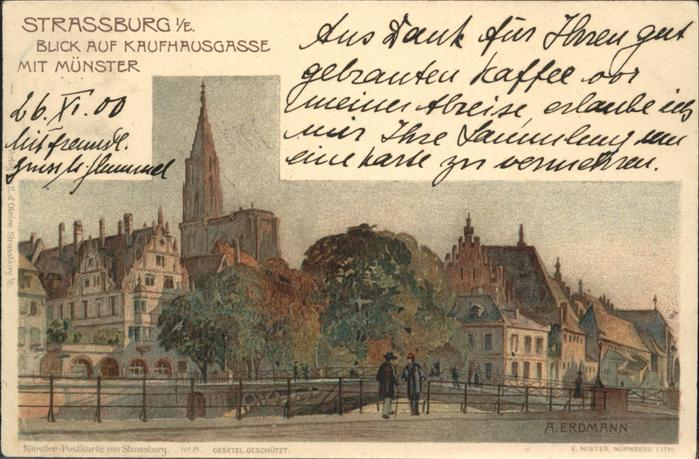 STRASSBURG I/E.
BLICK AUF KAUFHAUSGASSE
MIT MÜNSTER
Aus Dank für Ihren gut
gebranten Kaffee vor
meiner Abreise, erlaube ich
mir Ihre Sammlung um
eine Karte zu vermehren.
26. XI. 00
Mit freundl.
A. ERDMANN
Künstler-Postkarte von Strassburg. No 8. GESETZL. GESCHÜTZT.
E. NISTER, NÜRNBERG LITH.